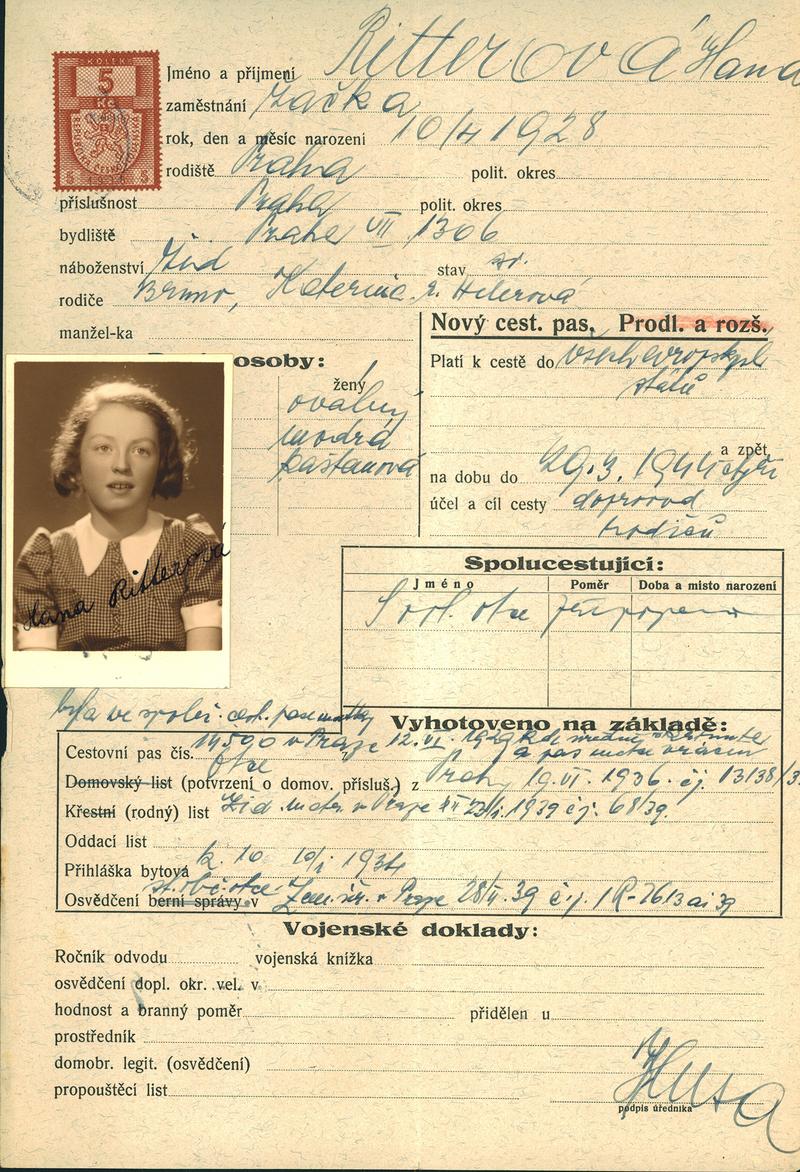 KOLEK
5
Kč
Jméno a příjmení Ritterová Hana
zaměstnání žačka
rok, den a měsíc narození 10/4 1928
rodiště Praha polit. okres
příslušnost Praha polit. okres
bydliště Praha VII 1306
náboženství žid stav sv.
rodiče Bruno, Katerina r. Hellerová
manžel-ka
Nový cest. pas. Prodl. a rozš.
osoby:
ženy
oválný
modrá
kaštanová
Platí k cestě do všech evropských
států
a zpět
na dobu do 29.3. 1944 čtyři
účel a cíl cesty doprovod
rodičů
Hana Ritterová
Spolucestující:
Jméno Poměr Doba a místo narození
byla ve společ. cest. pase matky
Vyhotoveno na základě:
Cestovní pas čís. 14590 v Praze 12. VI. 1929
a pas matce vrácen
otce
Domovský list (potvrzení o domov. přísluš.) z Prahy 19. VI. 1936 čj. 13138/3
Křestní (rodný) list Žid. matr. v Praze 1939 čj. 68/39.
Oddací list
Přihláška bytová z. 10 10/1 1934
st. obč. otce
Osvědčení berní správy v Zem. úř. v Praze 39 čj. 1R-7613 ai 39
Vojenské doklady:
Ročník odvodu vojenská knížka
osvědčení dopl. okr. vel. v
hodnost a branný poměr přidělen u
prostředník
domobr. legit. (osvědčení)
propouštěcí list
podpis úředníka